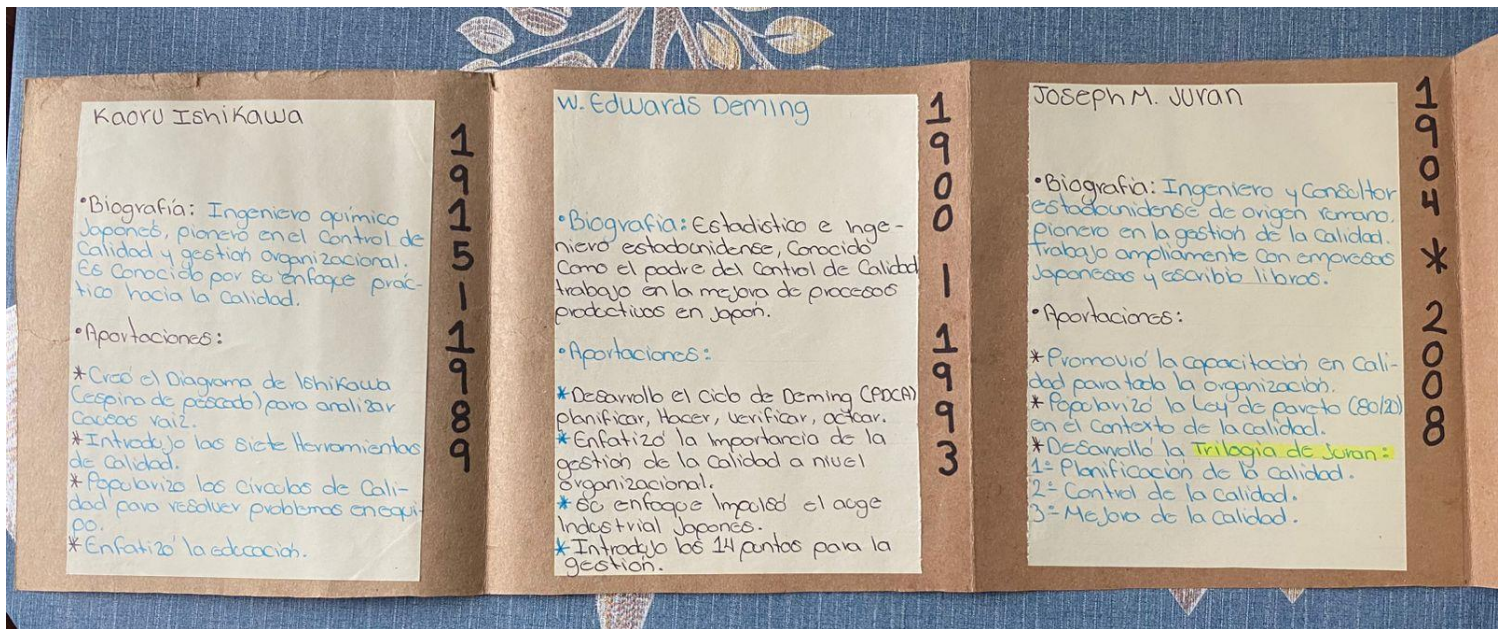 Kaoru Ishikawa
•Biografía: Ingeniero químico
Japones, pionero en el control de
Calidad y gestion organizacional.
Es Conocido por su enfoque prác-
tico hacia la Calidad.
•Aportaciones:
*Creó el Diagrama de Ishikawa
(espina de pescado) para analizar
Causas raiz.
*Introdujo las siete Herramientas
de Calidad.
*Popularizo los circulos de Cali-
dad para resolver problemas en equi-
po.
*Enfatizó la educación.
1915 | 1989
W. Edwards Deming
•Biografia: Estadistico e Inge-
niero estadounidense, Conocido
Como el padre del Control de Calidad
trabajo en la mejora de procesos
productivos en Japón.
•Aportaciones:
*Desarrollo el ciclo de Deming (PDCA)
planificar, Hacer, verificar, actuar.
*Enfatizó la Importancia de la
gestión de la Calidad a nivel
organizacional.
*Su enfoque Impulsó el auge
Industrial Japonés.
*Introdujo los 14 puntos para la
gestión.
1900 | 1993
Joseph M. Juran
•Biografia: Ingeniero y Consultor
estadounidense de origen rumano.
pionero en la gestión de la Calidad.
Trabajo ampliamente con empresas
Japonesas y escribio libros.
•Aportaciones:
*Promovió la capacitación en Cali-
dad para toda la organización.
*Popularizó la Ley de pareto (80/20)
en el contexto de la calidad.
*Desarrolló la Trilogia de Juran:
1= Planificación de la Calidad.
2= Control de la Calidad.
3= Mejora de la Calidad.
1904 * 2008